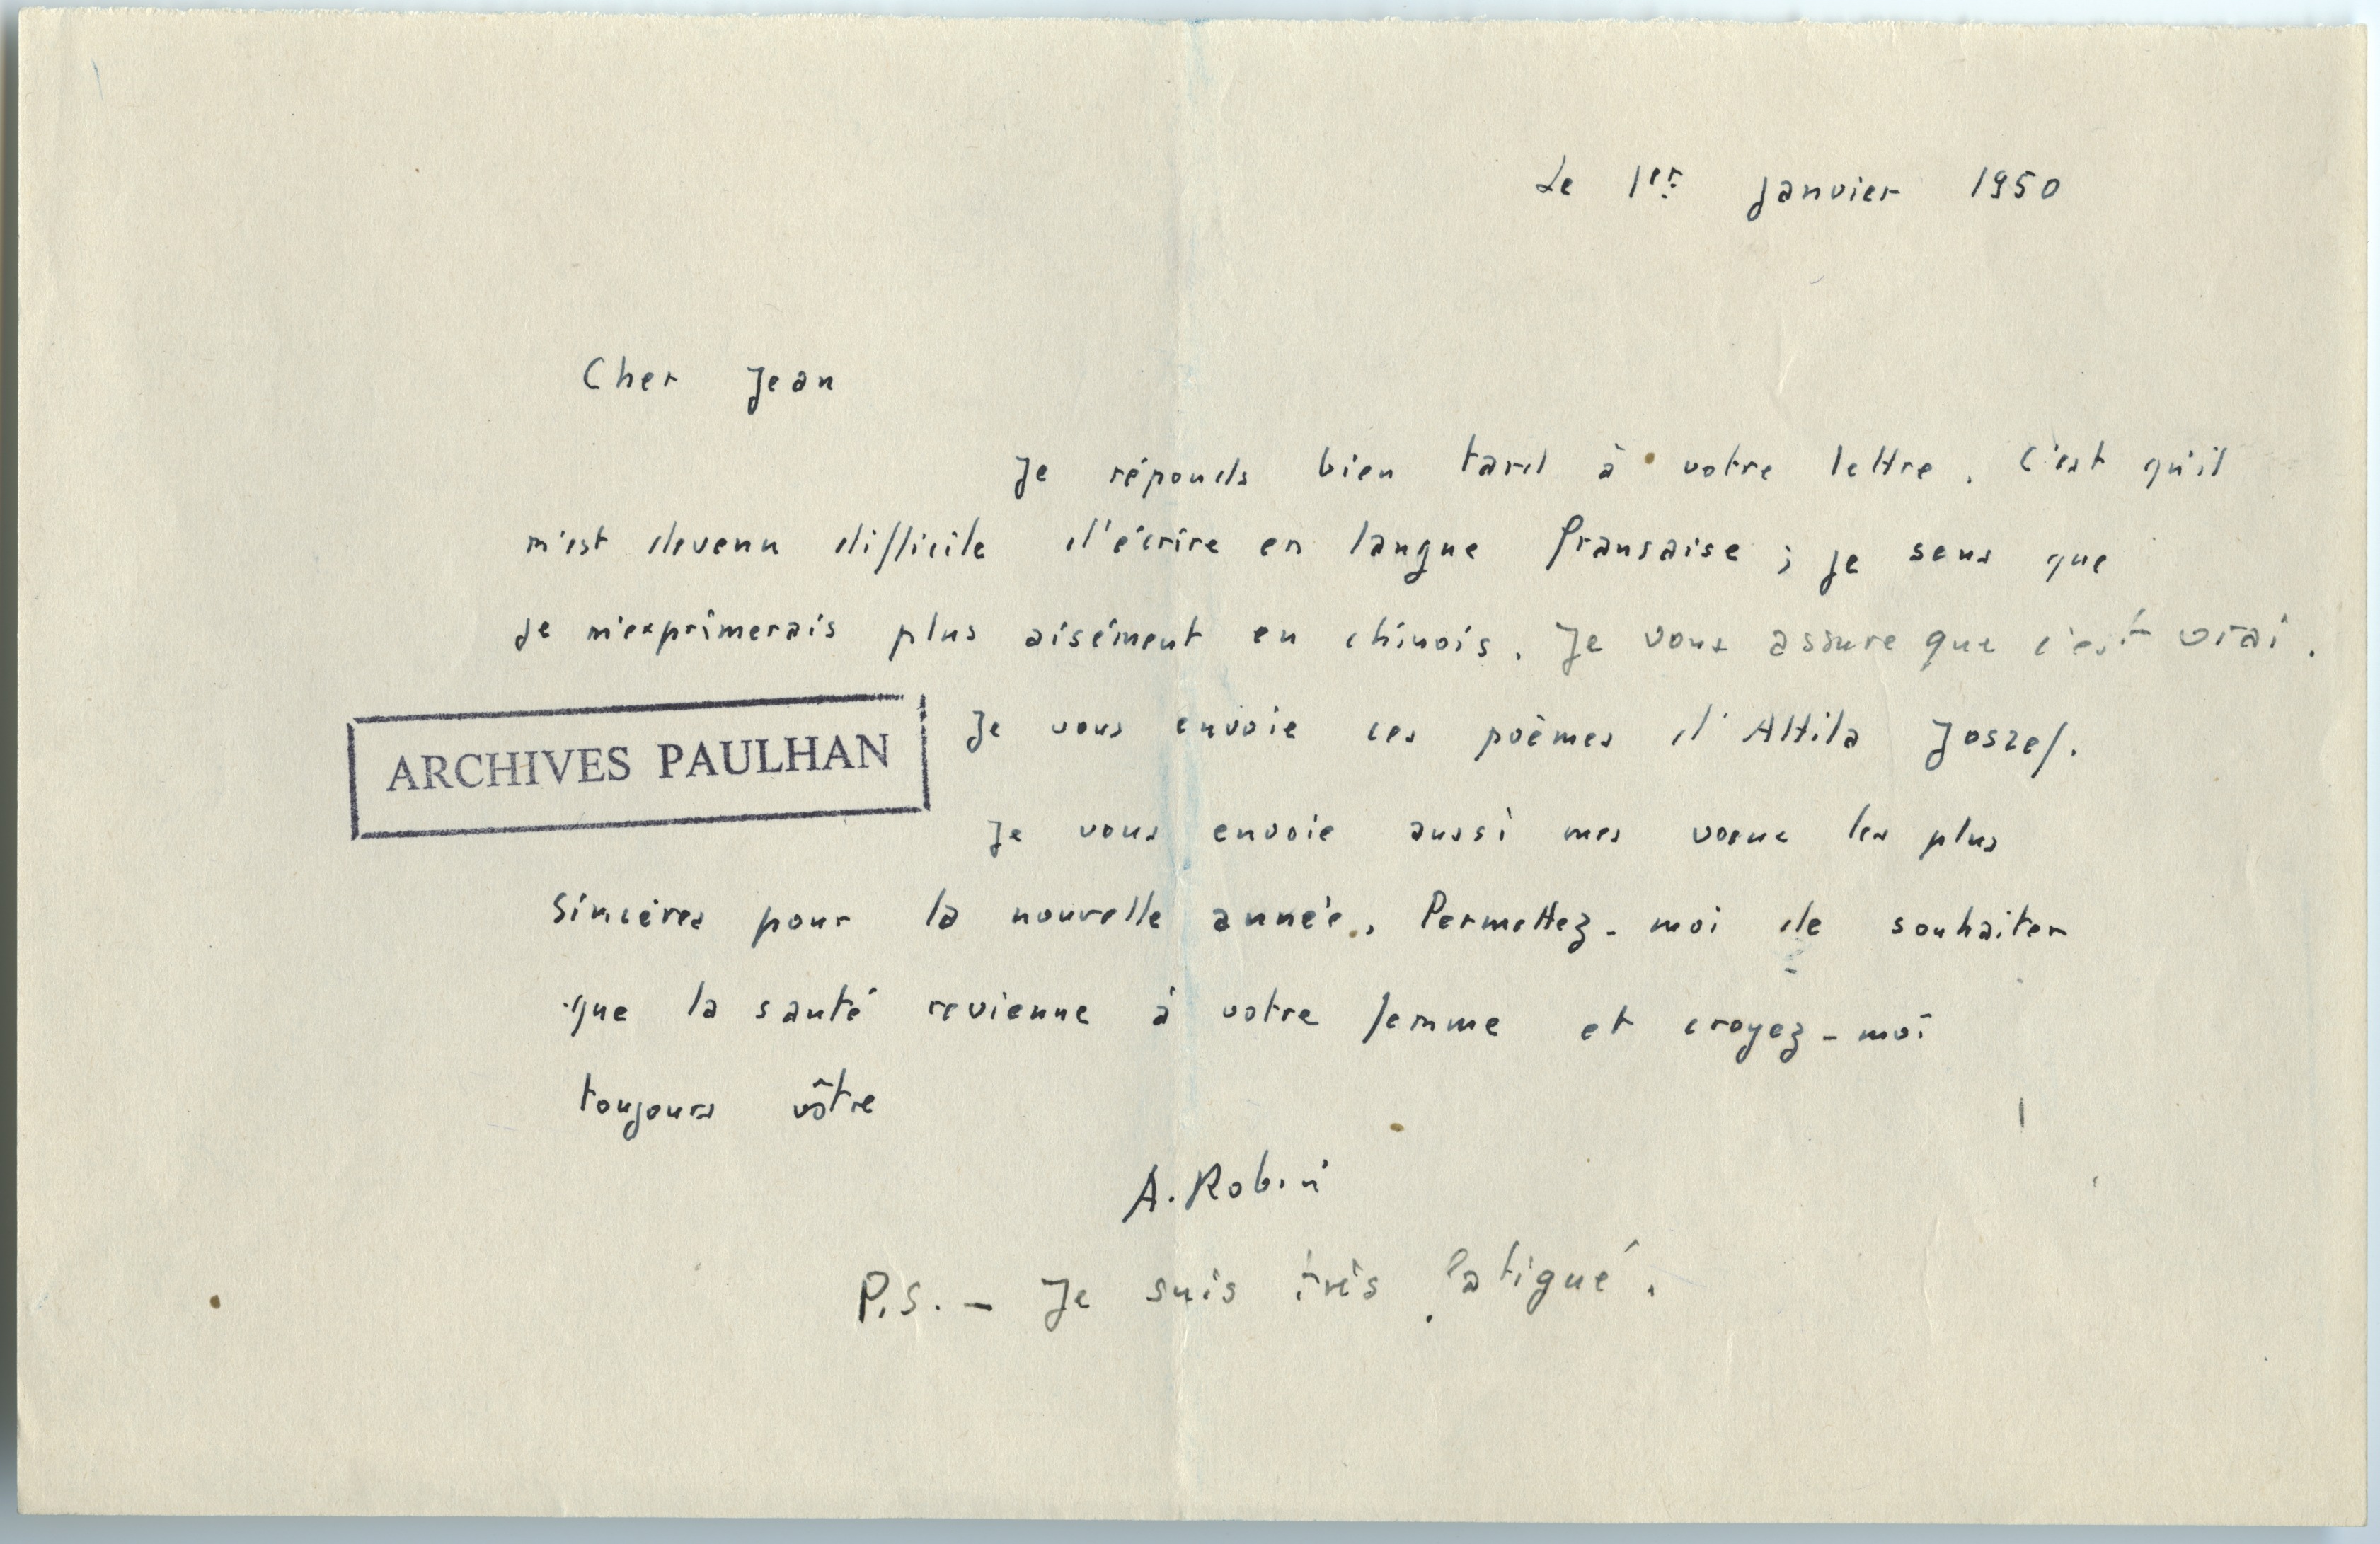 Le 1er Janvier 1950
Cher Jean
Je réponds bien tard à votre lettre. C'est qu'il
m'est devenu difficile d'écrire en langue fransaise ; je sens que
je m'exprimerais plus aisément en chinois. Je vous assure que c'est vrai.
Je vous envoie ces poèmes d'Attila Joszef.
ARCHIVES PAULHAN
Je vous envoie aussi mes voeux les plus
sincères pour la nouvelle année. Permettez-moi de souhaiter
que la santé revienne à votre femme et croyez-moi
toujours vôtre
A. Robin
P.S. - Je suis très fatigué.